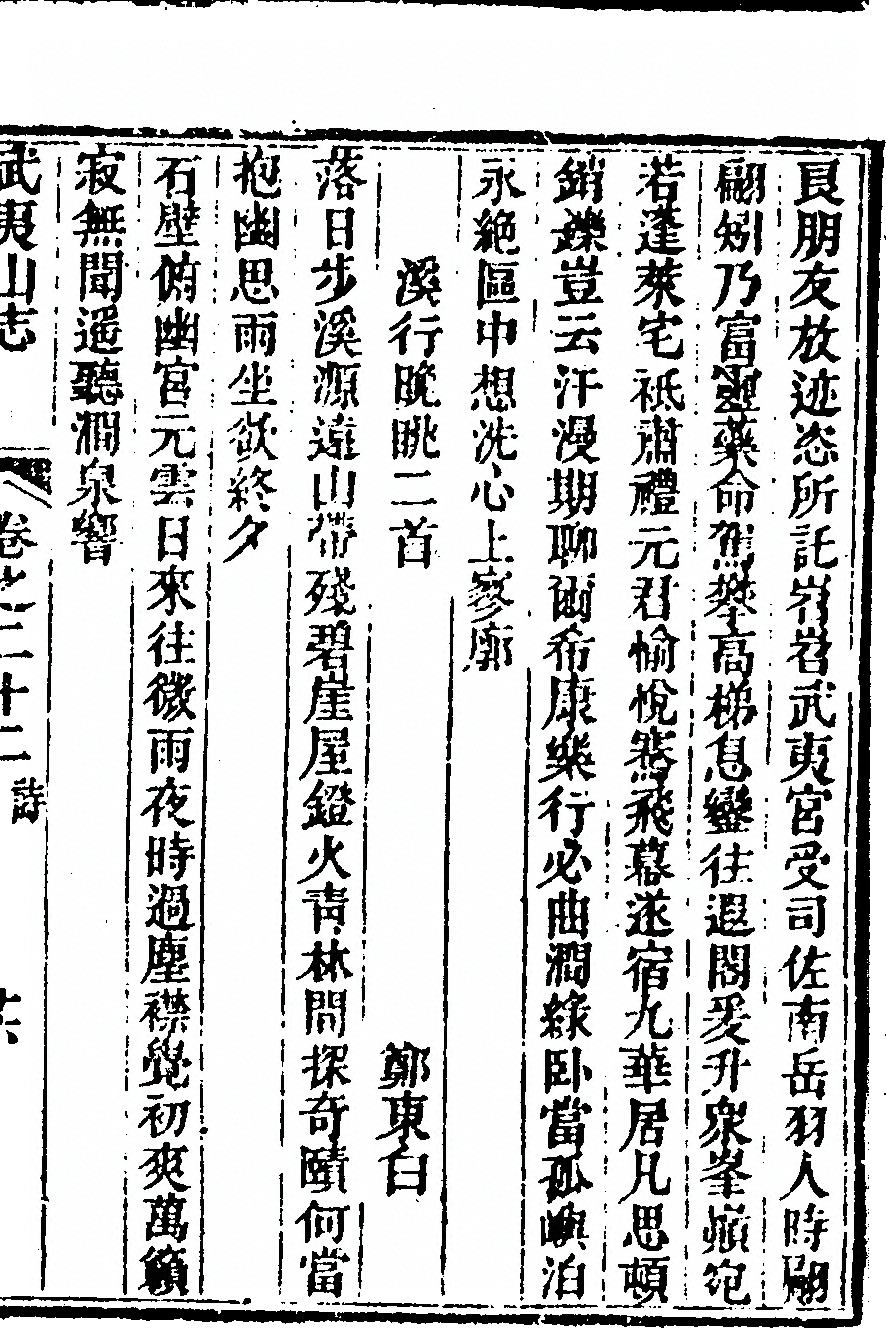 良朋友放迹恣所託岧岧武夷宮受司佐南岳羽人時翩
翩矧乃富靈藥命駕攀高梯息轡往遐閣爰升衆峯巔宛
若蓬萊宅祗肅禮元君愉悅鶱飛幕遂宿九華居凡思頓
銷鑠豈云汗漫期聊爾希康樂行必曲澗緣卧當孤嶼泊
永絶區中想洗心上寥廓
溪行晩眺二首
鄭東白
落日步溪源遠山帶殘碧崖屋鐙火青林間探奇賾何當
抱幽思雨坐欲終夕
石壁俯幽宮元雲日來往微雨夜時過塵襟覺初爽萬籟
寂無聞遥聽澗泉響
武夷山志
卷之二十二
詩